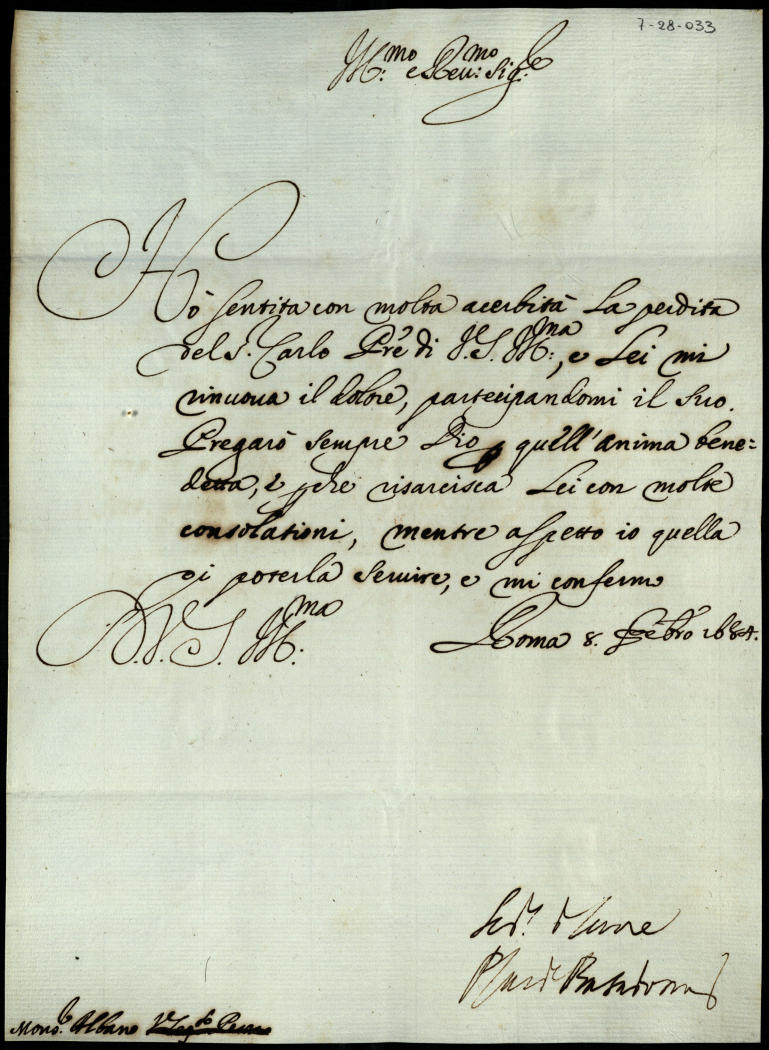 7-28-033
Ill:mo e Reu:mo Sig:re
Hò sentita con molta acerbità la perdita
del S.r Carlo Pre di V.S. Ill:ma, e Lei mi
rinuoua il dolore, partecipandomi il suo.
Pregarò sempre Dio quell'anima bene=
detta, e pche risarcisca Lei con molte
consolationi, mentre aspetto io quella
di poterla seruire, e mi confermo
D. V. S. Ill:ma
Roma 8. Febro 1684.
Ser.
Mons.r Albano